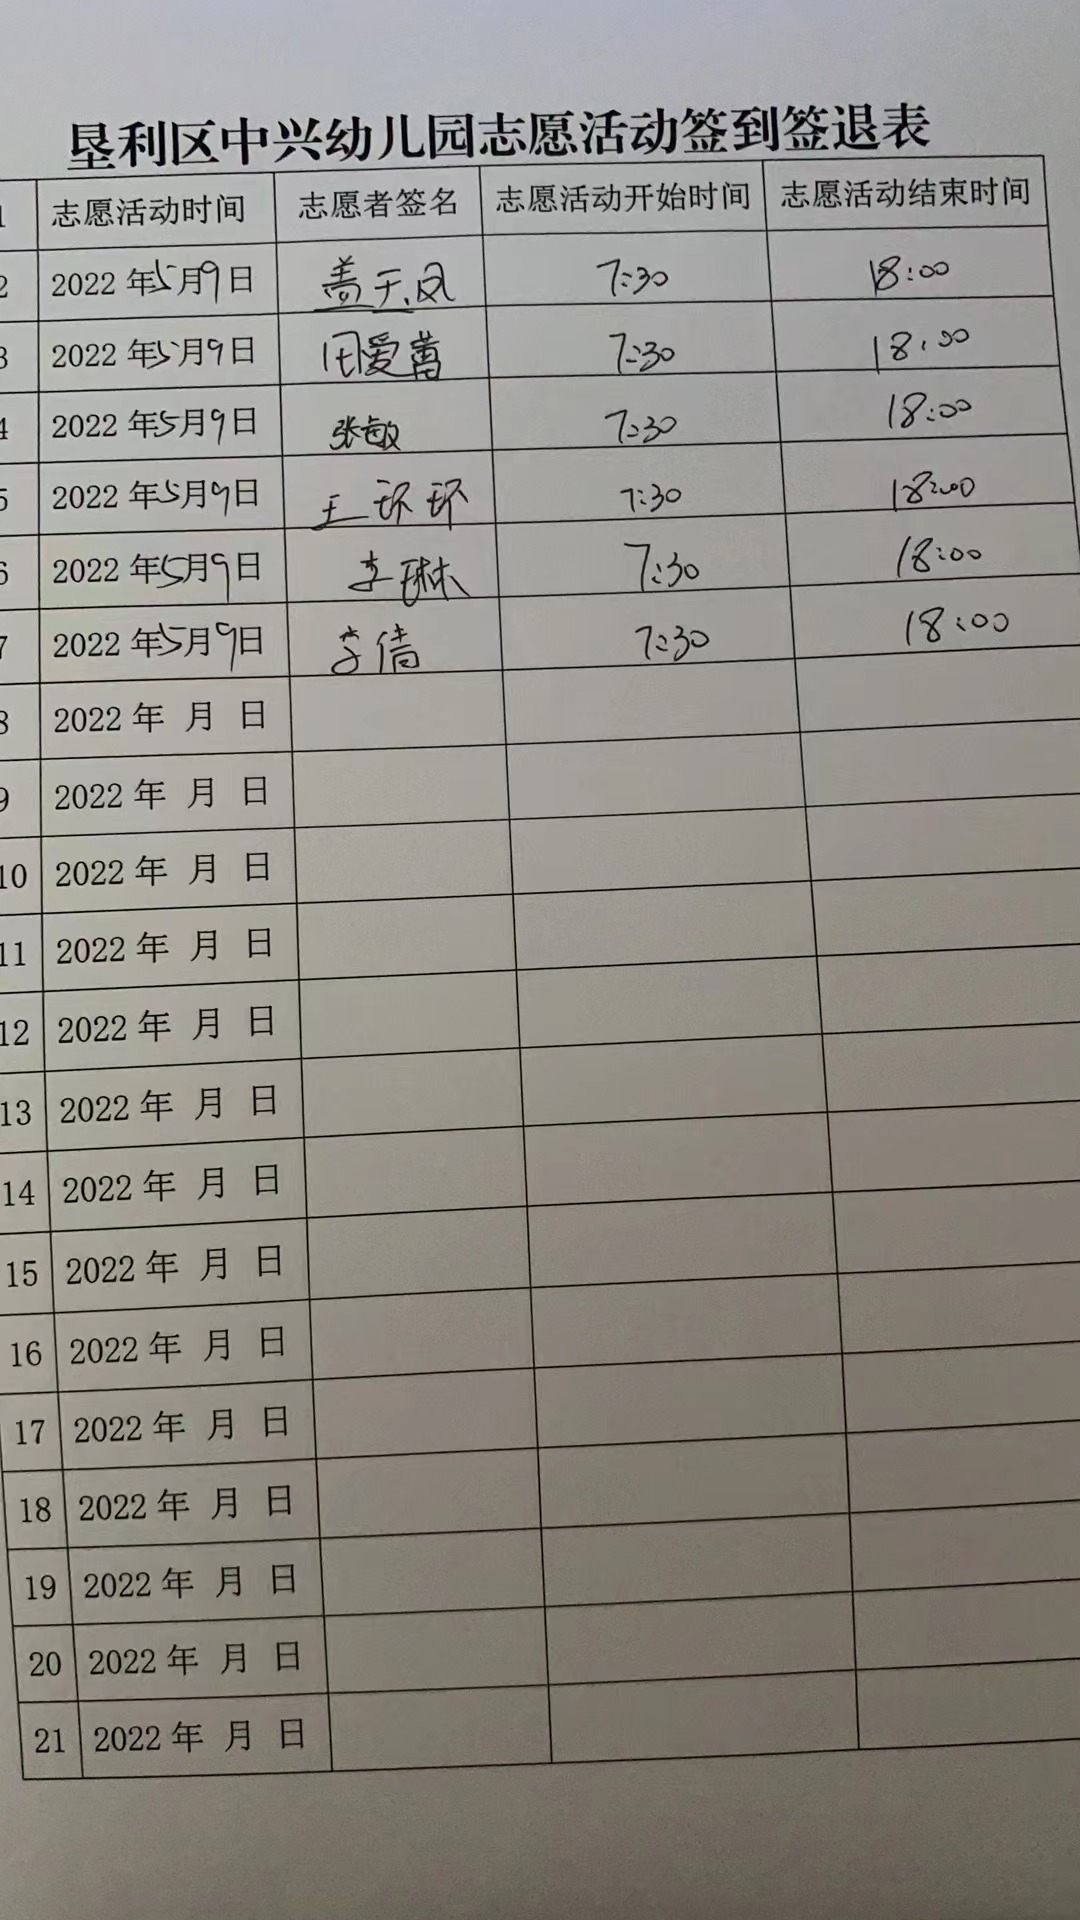 垦利区中兴幼儿园志愿活动签到签退表
1 志愿活动时间 志愿者签名 志愿活动开始时间 志愿活动结束时间
2 2022年5月9日 盖玉凤 7:30 18:00
3 2022年5月9日 田爱 7:30 18:00
4 2022年5月9日 张敏 7:30 18:00
5 2022年5月9日 王环环 7:30 18:00
6 2022年5月9日 李琳 7:30 18:00
7 2022年5月9日 李倩 7:30 18:00
8 2022年 月 日
9 2022年 月 日
10 2022年 月 日
11 2022年 月 日
12 2022年 月 日
13 2022年 月 日
14 2022年 月 日
15 2022年 月 日
16 2022年 月 日
17 2022年 月 日
18 2022年 月 日
19 2022年 月 日
20 2022年 月 日
21 2022年 月 日